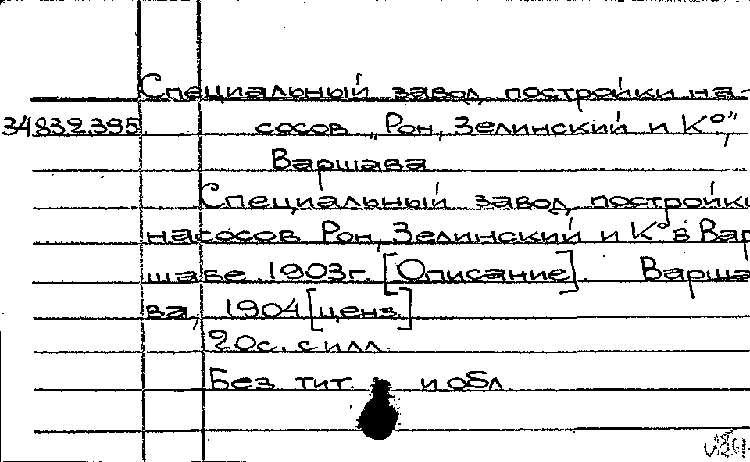 Специальный завод постройки на-
34832395 сосов „Рон, Зелинский и Кº",
Варшава
Специальный завод постройки
насосов Рон, Зелинский и Кº в Вар
шаве 1903г. [Описание]. Варша
ва, 1904 [ценз.]
20с. с илл.
Без тит. и обл.